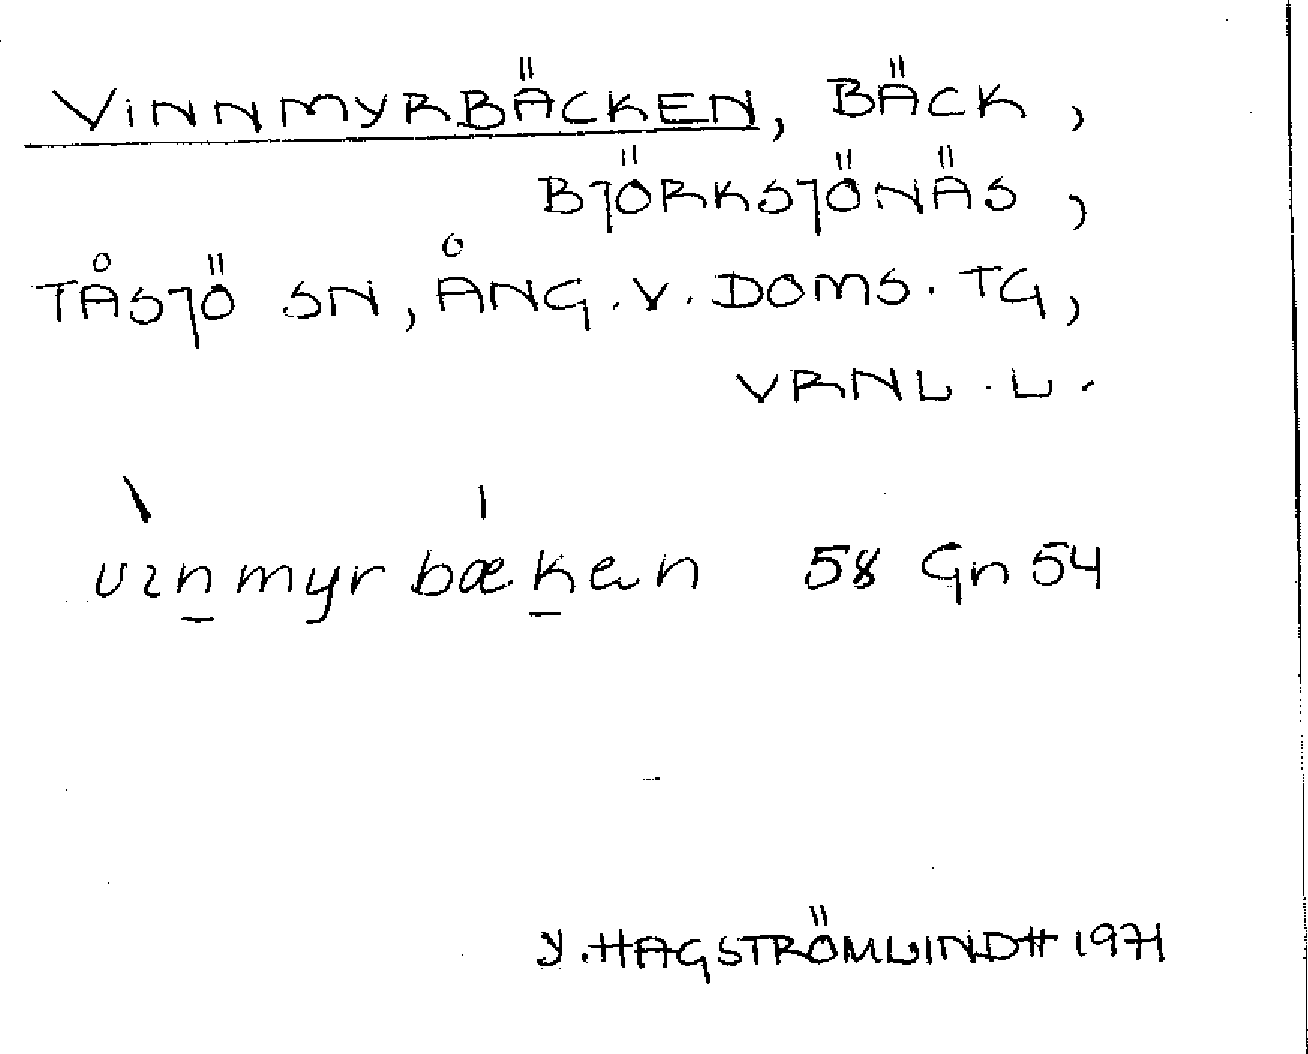 VINNMYRBÄCKEN, BÄCK,
BJÖRKSJÖNÄS,
TÅSJÖ SN, ÅNG. V. DOMS. TG,
VRNL. L.
vɪn̲myrbæk̲en 58 Gn 54
Y. HAGSTRÖMLINDH 1971